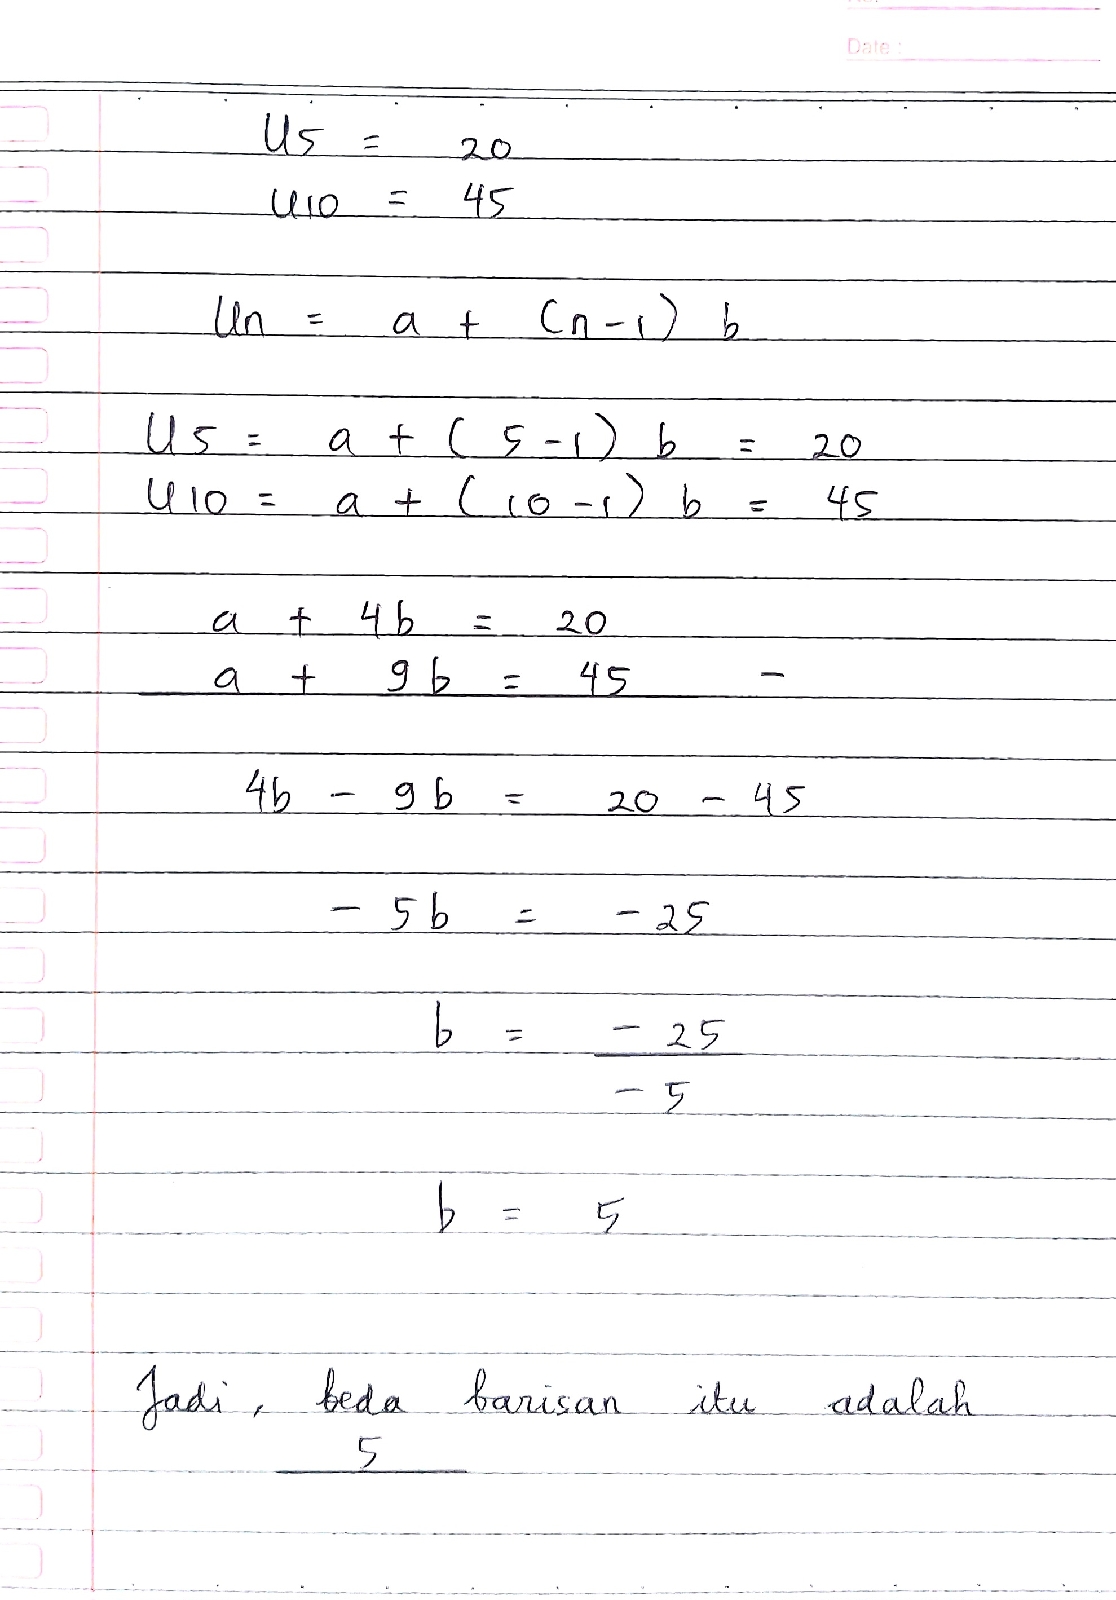 Date :
U5 = 20
U10 = 45
Un = a + (n-1) b
U5 = a + (5-1) b = 20
U10 = a + (10-1) b = 45
a + 4b = 20
a + 9b = 45 -
4b - 9b = 20 - 45
- 5b = - 25
b = - 25
- 5
b = 5
Jadi, beda barisan itu adalah
5